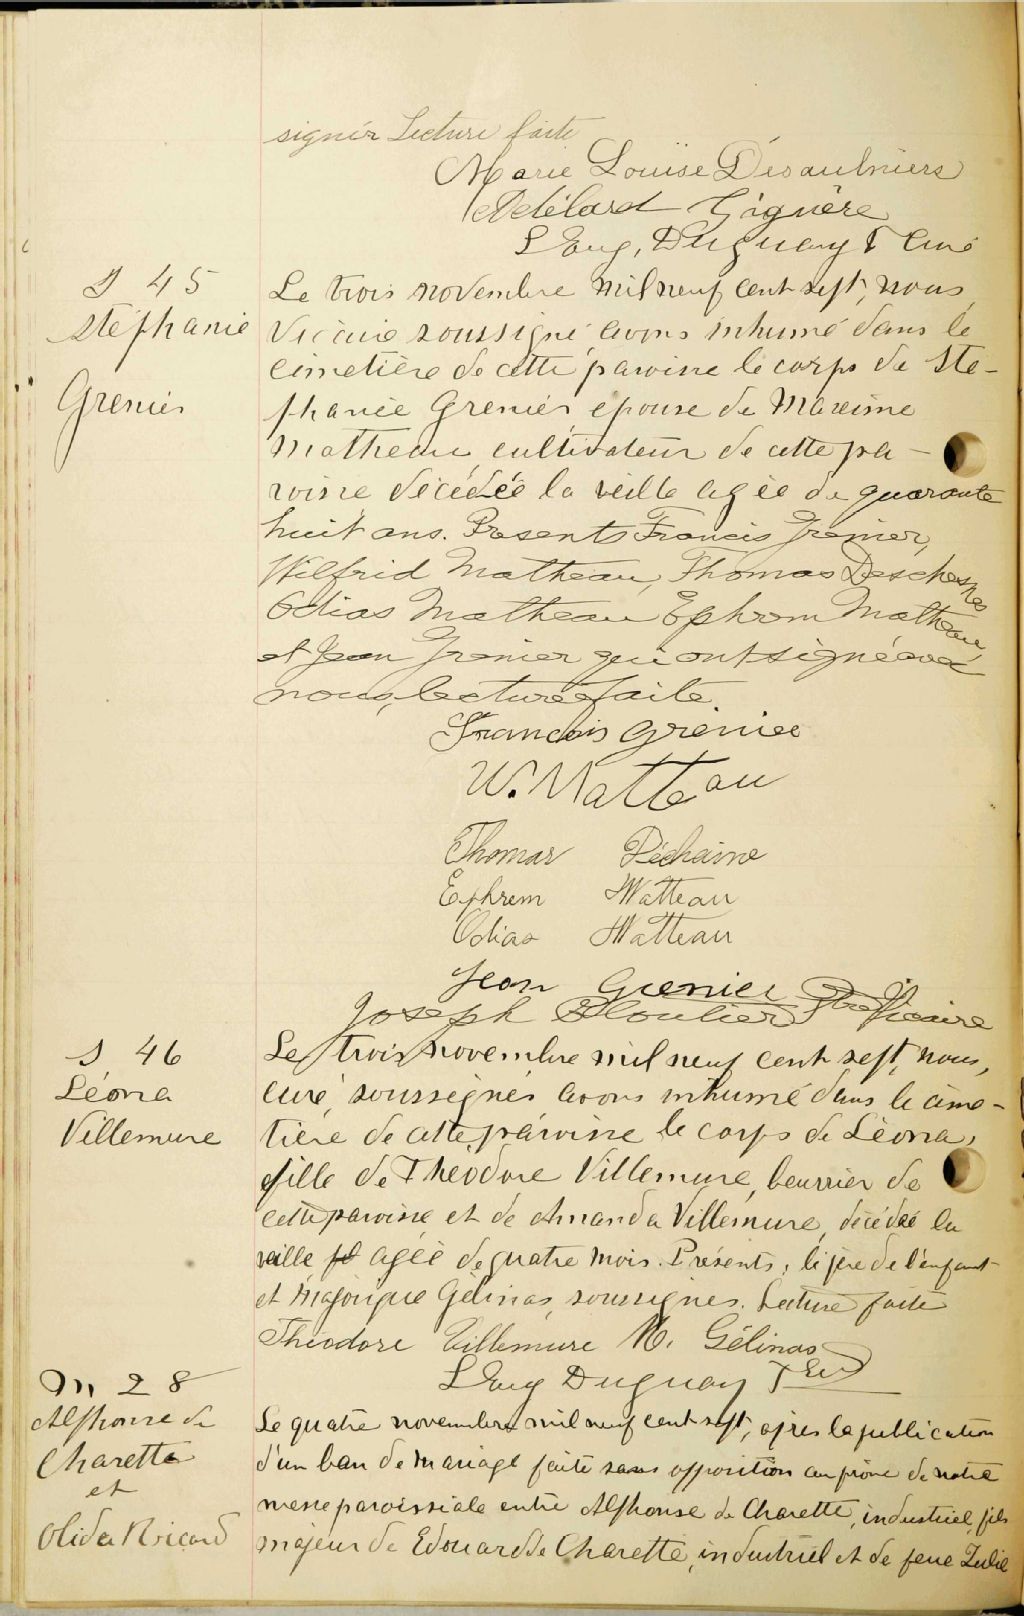 signér Lecture faite
Marie Louise Désaulniers
Adélard Gignère
L Eug, Duguay Ptre Curé
S 45
Stéphanie
Grenier
Le trois novembre mil neuf cent sept, nous,
Vicaire soussigné avons inhumé dans le
cimetière de cette paroisse le corps de Sté-
phanie Grenier épouse de Maxime
Matheau cultivateur de cette pa-
roisse décédée la veille agée de quarante
huit ans. Presents Francis Grenier,
Wilfrid Matheau, Thomas Deschesnes
Odias Matheau Ephrem Matheau,
et Jean Grenier qui ont signé avec
nous, lecture faite.
Francois Grenier
W. Matteau
Thomas Déchaine
Ephrem Matteau
Odias Matteau
Jean Grenier
Joseph Cloutier Ptre Vicaire
S 46
Léona
Villemure
Le trois novembre mil neuf cent sept, nous,
curé, soussignés avons inhumé dans le cime-
tière de cette paroisse le corps de Léona,
fille de Théodore Villemure, beurrier de
cette paroisse et de Amanda Villemure, décédée la
veille agée de quatre mois. Présents, le père de l'enfant
et Majorique Gélinas, soussignés. Lecture faite
Théodore Villemure M. Gélinas
L Eug Duguay Ptre
M 28
Alphonse de
Charette
et
Olida Ricard
Le quatre novembre mil neuf cent sept, après la publication
d'un ban de mariage faite sans opposition au prône de notre
messe paroissiale entre Alphonse de Charette, industriel, fils
majeur de Edouard de Charette, industriel et de feue Zulie